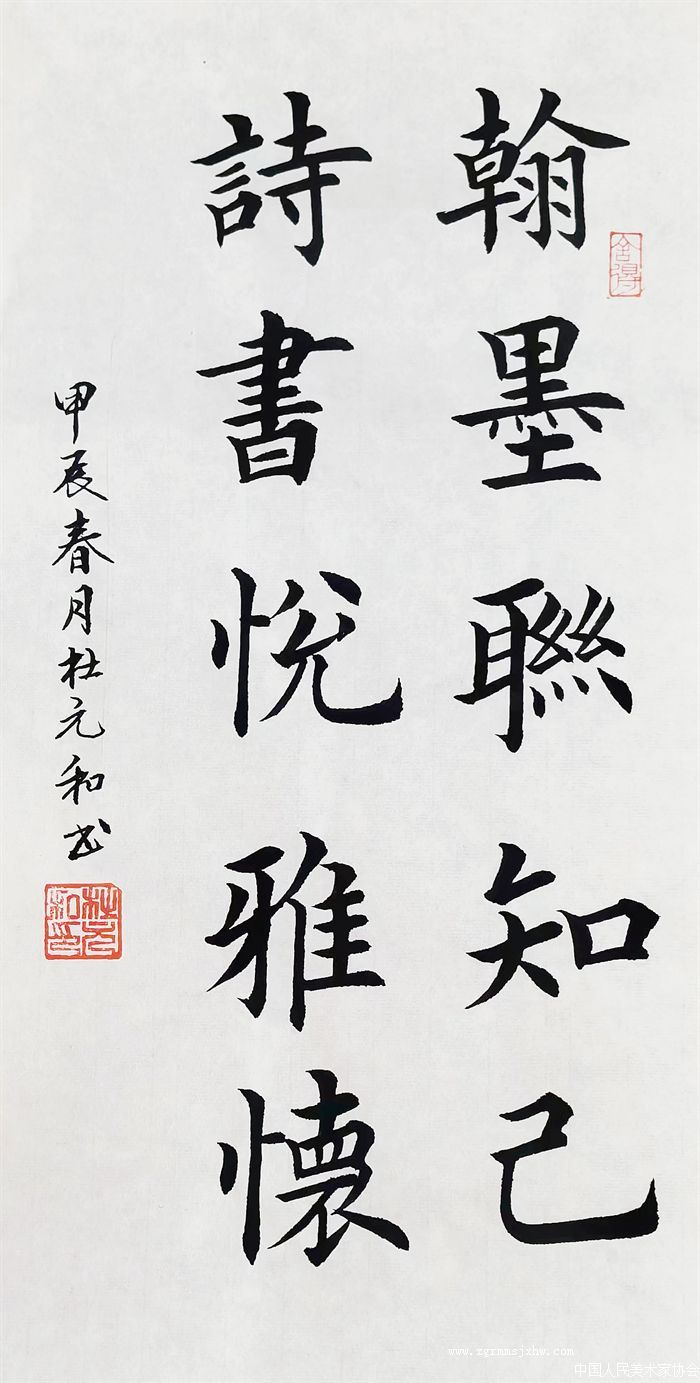 翰墨聯知己
詩書悅雅懷
甲辰春月杜元和书
舍得
杜元和印
www.zgrmmsjxhw.com
中国人民美术家协会